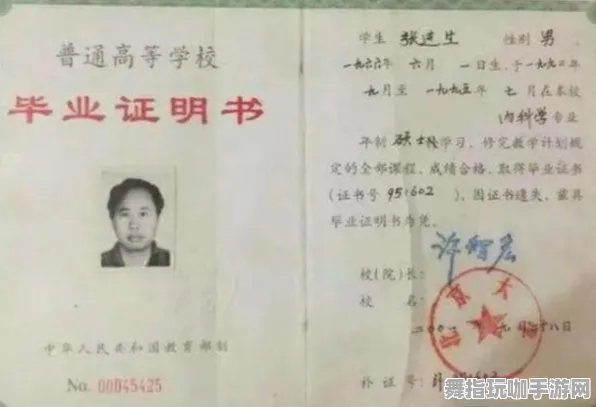 普通高等学校
毕业证明书
中华人民共和国教育部制
No. 00045425
学生 张进生 性别 男，
一九六六年 六月 一日生，于一九九二年
九月至 一九九五年 七月在本校
内科学专业
年制 硕士班学习，修完教学计划规
定的全部课程，成绩合格，取得毕业证书
（证书号 951602 ）。因证书遗失，兹具
毕业证明书为凭。
校（院）长：
许智宏
校 名：
北京大
二〇〇 年九月二十八日
补证号：
舞指玩咖手游网